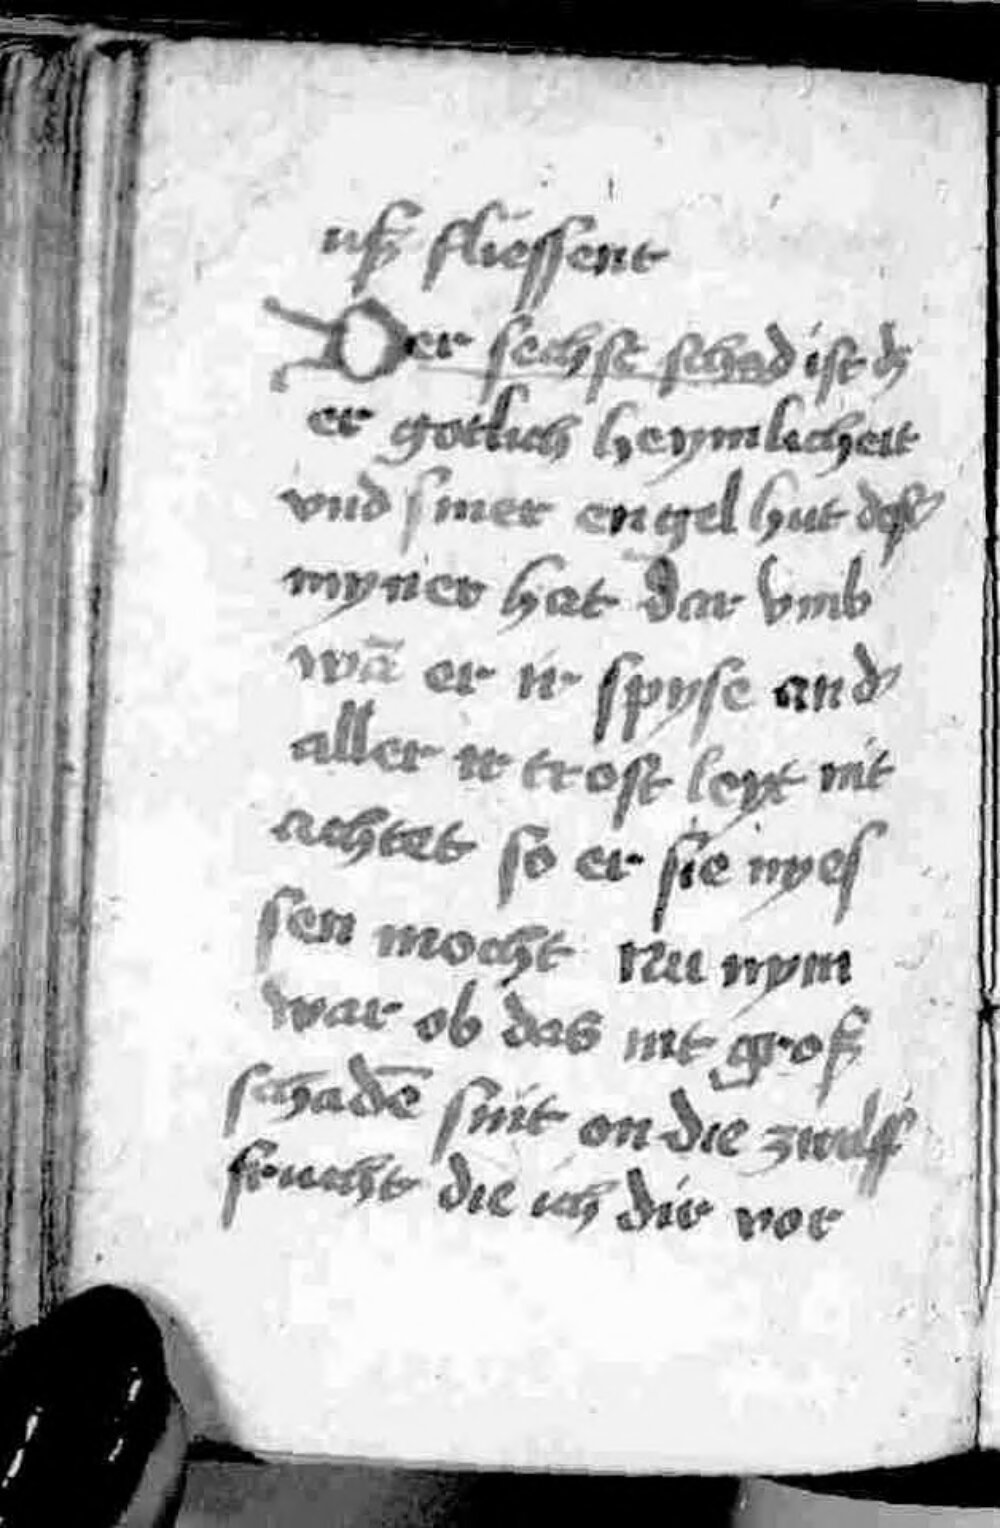 uß fliessent
Der sechst schad ist dz
er gotlich heymlicheit
vnd siner engel hut dest
myner hat dar vmb
wā er ir spyse and
aller ir trost leyt nit
achtet so er sie nyes
sen mocht Nu nym
war ob das nit groß
schadē sint on die zwulff
frucht die ich dir vor